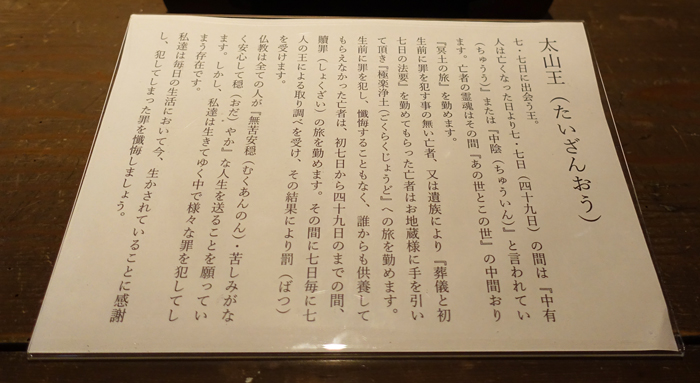 太山王（たいざんおう）
七・七日に出会う王。
人は亡くなった日より七・七日（四十九日）の間は『中有
（ちゅうう）』または『中陰（ちゅういん）』と言われてい
ます。亡者の霊魂はその間『あの世とこの世』の中間おり
『冥土の旅』を勤めます。
生前に罪を犯す事の無い亡者、又は遺族により『葬儀と初
七日の法要』を勤めてもらった亡者はお地蔵様に手を引い
て頂き『極楽浄土（ごくらくじょうど）』への旅を勤めます。
生前に罪を犯し、懺悔することもなく、誰からも供養して
もらえなかった亡者は、初七日から四十九日のまでの間、
贖罪（しょくざい）の旅を勤めます。その間に七日毎に七
人の王による取り調べを受け、その結果により罰（ばつ）
を受けます。
仏教は全ての人が『無苦安穏（むくあんのん）・苦しみがな
く安心して穏（おだ）やか』な人生を送ることを願ってい
ます。しかし、私達は生きてゆく中で様々な罪を犯してし
まう存在です。
私達は毎日の生活において今、生かされていることに感謝
し、犯してしまった罪を懺悔しましょう。